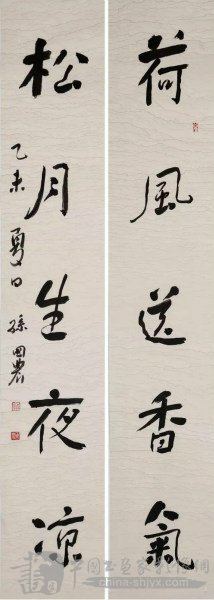 荷風送香氣
松月生夜涼
乙未夏日 孫國農
中国书画家联谊网
china-shjyx.com